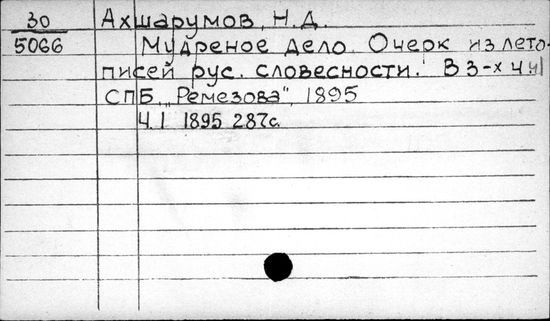 30 Ахшарумов, Н.Д.
5066 Мудреное дело. Очерк из лето-
писей рус. словесности. В 3-х ч.
СПБ „Ремезова", 1895
Ч.1 1895 287с.